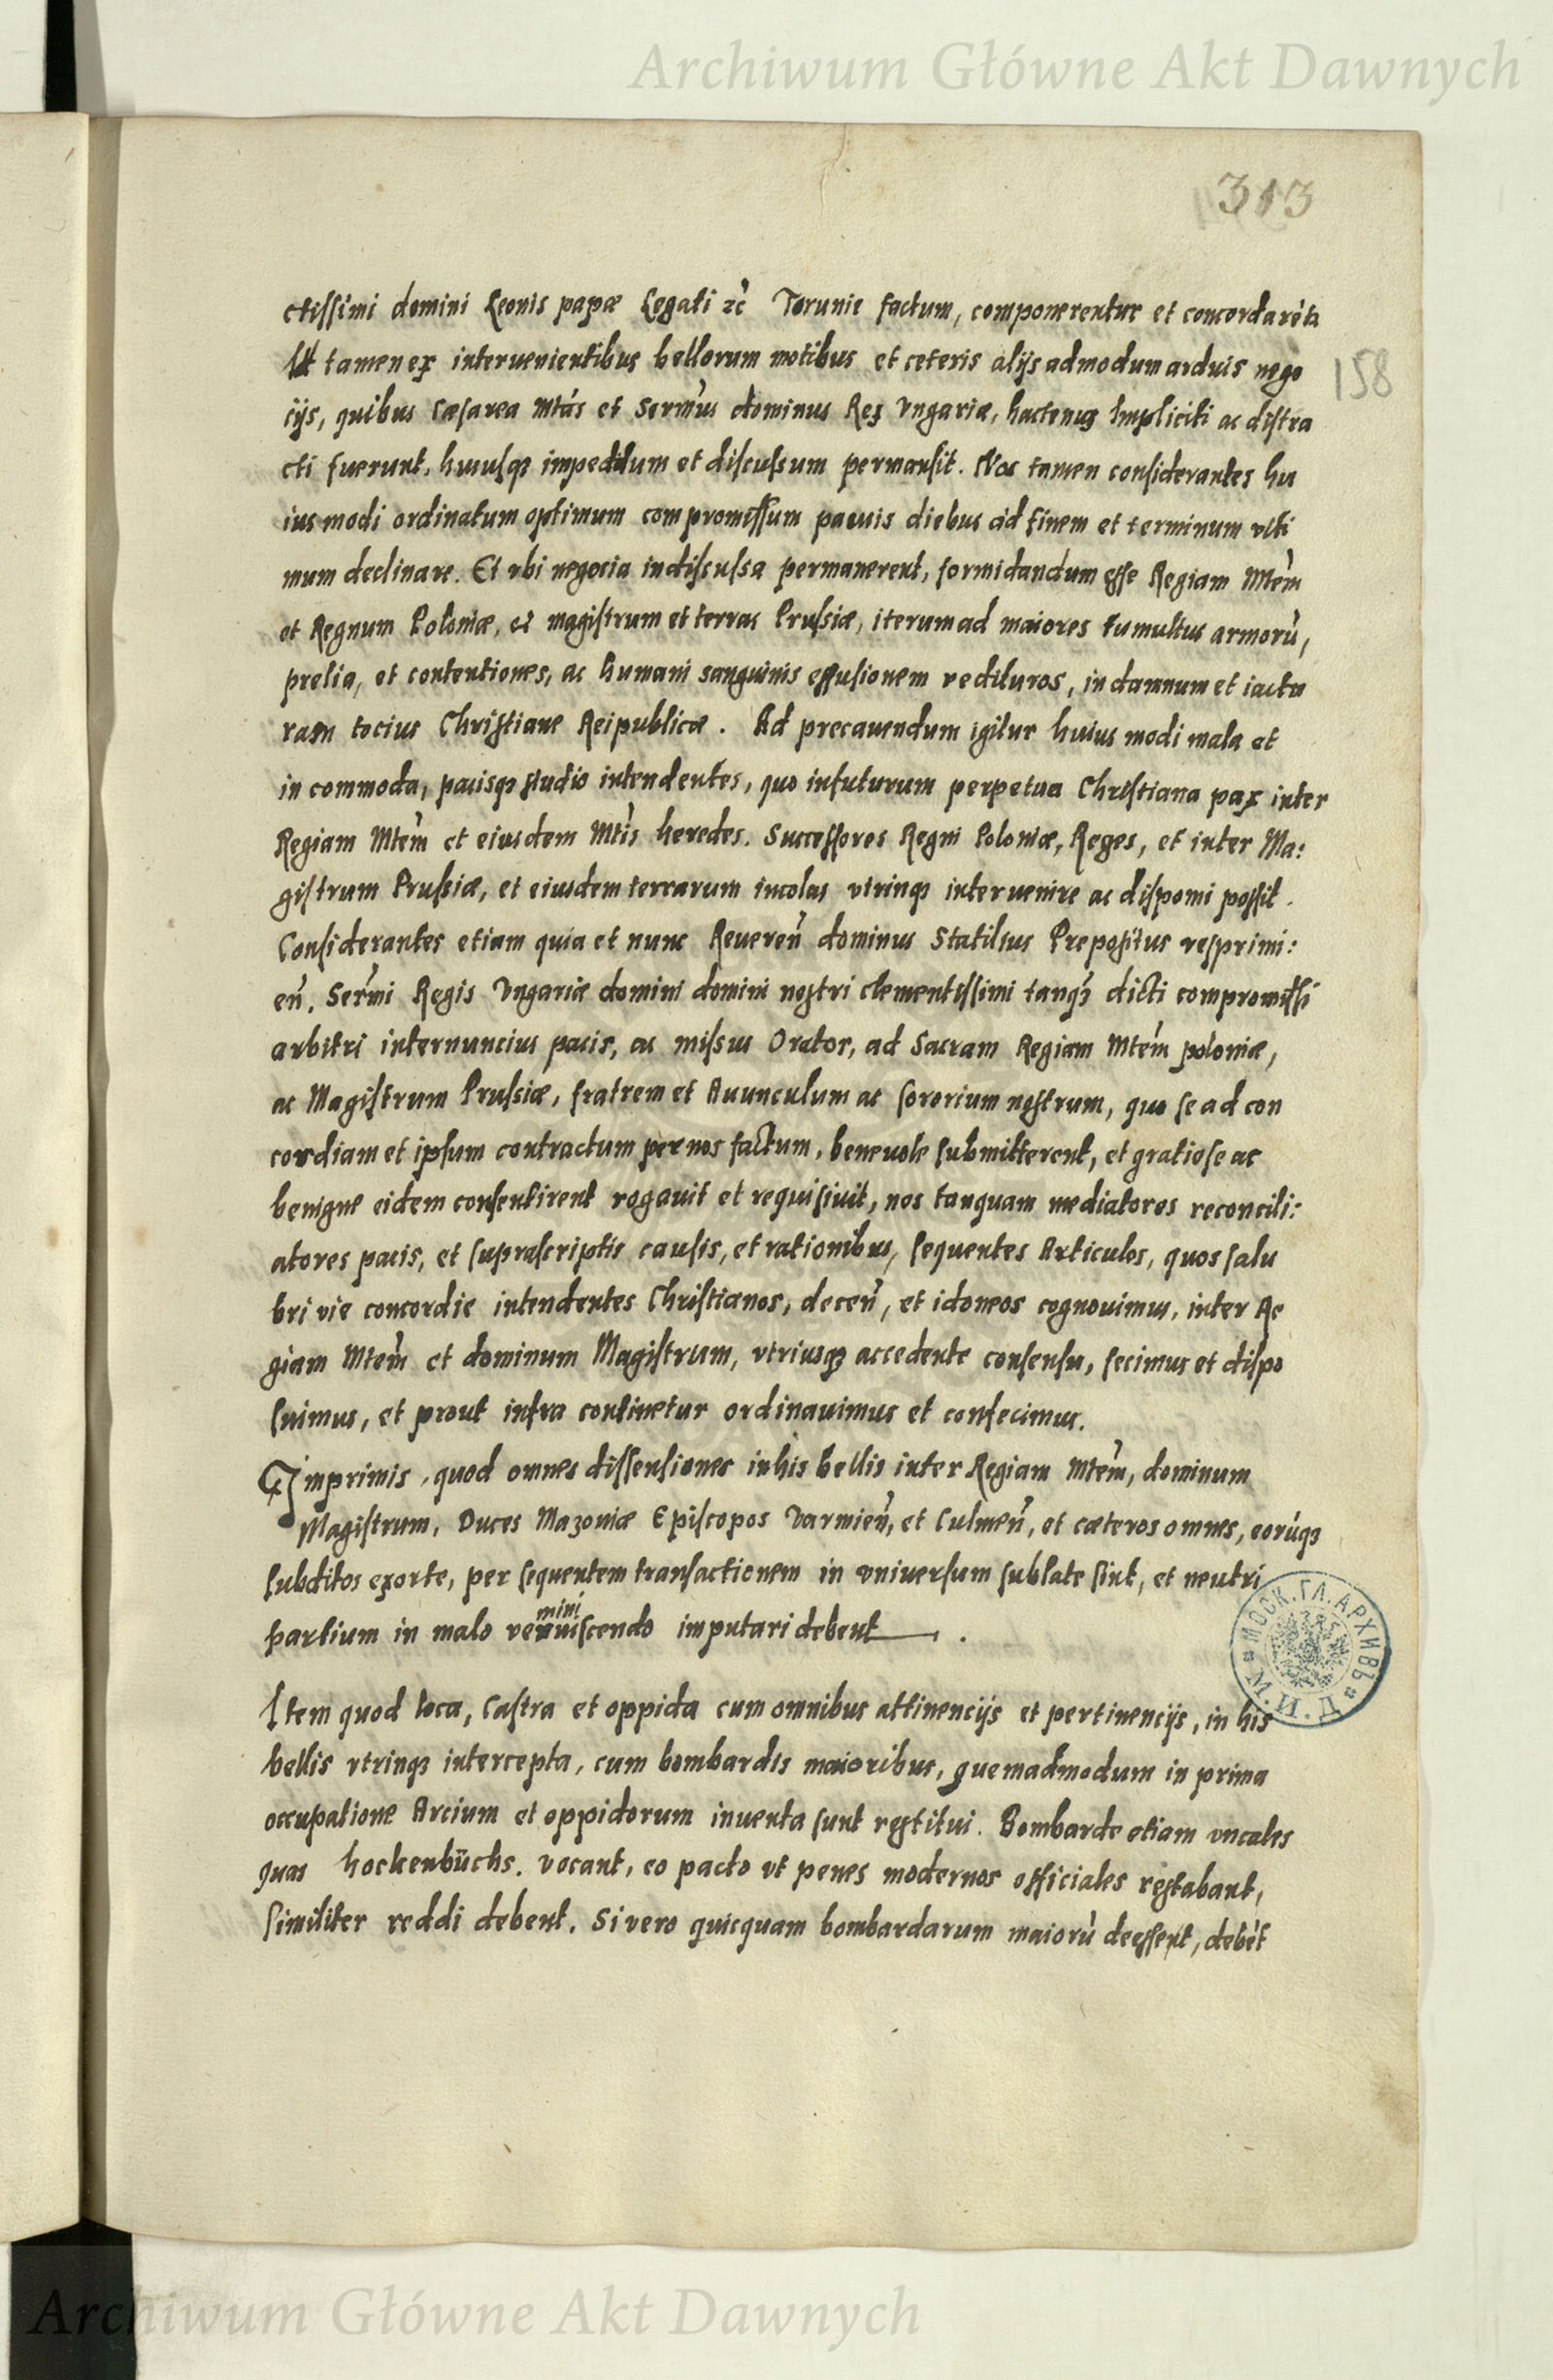 Archiwum Główne Akt Dawnych
313
158
ctissimi domini Leonis papæ Legati zc̀ Torunie factum, componerentur et concordarèt
Ut tamen ex intervenientibus bellorum motibus et ceteris alijs admodum arduis nego
cijs, quibus Cæsarea Mtas et Sermus dominus Rex Vngariæ, hactenus Impliciti ac distra
cti fuerunt, huiusq3 impeditum et discussum permansit. Nos tamen considerantes hu
iusmodi ordinatum optimum compromissum paucis diebus ad finem et terminum vlti
mum declinare. Et vbi negocia indiscussa permanerent, formidandum esse Regiam Mtem
et Regnum Poloniæ, et magistrum et terras Prussiæ, iterum ad maiores tumultus armorù,
prelia, et contentiones, ac humani sanguinis effusionem redituros, in damnum et iactu
ram tocius Christiane Reipublicæ. Ad precauendum igitur huiusmodi mala et
incommoda, pacisq3 studio intendentes, quo infuturum perpetua Christiana pax inter
Regiam Mtem et eiusdem Mtis heredes. Successores Regni Poloniæ, Reges, et inter Ma:
gistrum Prussiæ, et eiusdem terrarum incolas vtrinq3 interuenire ac disponi possit.
Considerantes etiam quia et nunc Reueren̄ dominus Statilius Prepositus vesprimi:
en̄. Sermi Regis Vngariæ domini domini nostri clementissimi tanq3 dicti compromissi
arbitri internuncius pacis, ac missus Orator, ad Sacram Regiam Mtem poloniæ,
ac Magistrum Prussiæ, fratrem et Auunculum ac sororium nostrum, quo se ad con
cordiam et ipsum contractum per nos factum, beneuole submitterent, et gratiose ac
benigne eidem consentirent rogauit et requisiuit, nos tanquam mediatores reconcili:
atores pacis, et suprascriptis causis, et rationibus, sequentes Articulos, quos salu
bri vie concordie intendentes Christianos, decen̄, et idoneos cognouimus, inter Re
giam Mtem et dominum Magistrum, vtriusq3 accedente consensu, fecimus et dispo
suimus, et prout infra continetur ordinauimus et confecimus.
Imprimis, quod omnes dissensiones in his bellis inter Regiam Mtem, dominum
Magistrum, Duces Mazoniæ Episcopos Varmien̄, et Culmen̄, et cæteros omnes, eorùq3
subditos exorte, per sequentem transactionem in vniuersum sublate sint, et neutri
mini
partium in malo reminiscendo imputari debent.
Item quod loca, Castra et oppida cum omnibus attinencijs et pertinencijs, in his
bellis vtrinq3 intercepta, cum bombardis maioribus, quemadmodum in prima
occupatione Arcium et oppidorum inuenta sunt restitui. Bombarde etiam vncales
quas hockenbüchs. vocant, eo pacto vt penes modernos officiales restabant,
similiter reddi debent. Si vero quicquam bombardarum maiorù deessent, debèt
М. Г. МОСК. ГЛ. АРХИВЪ
Archiwum Główne Akt Dawnych